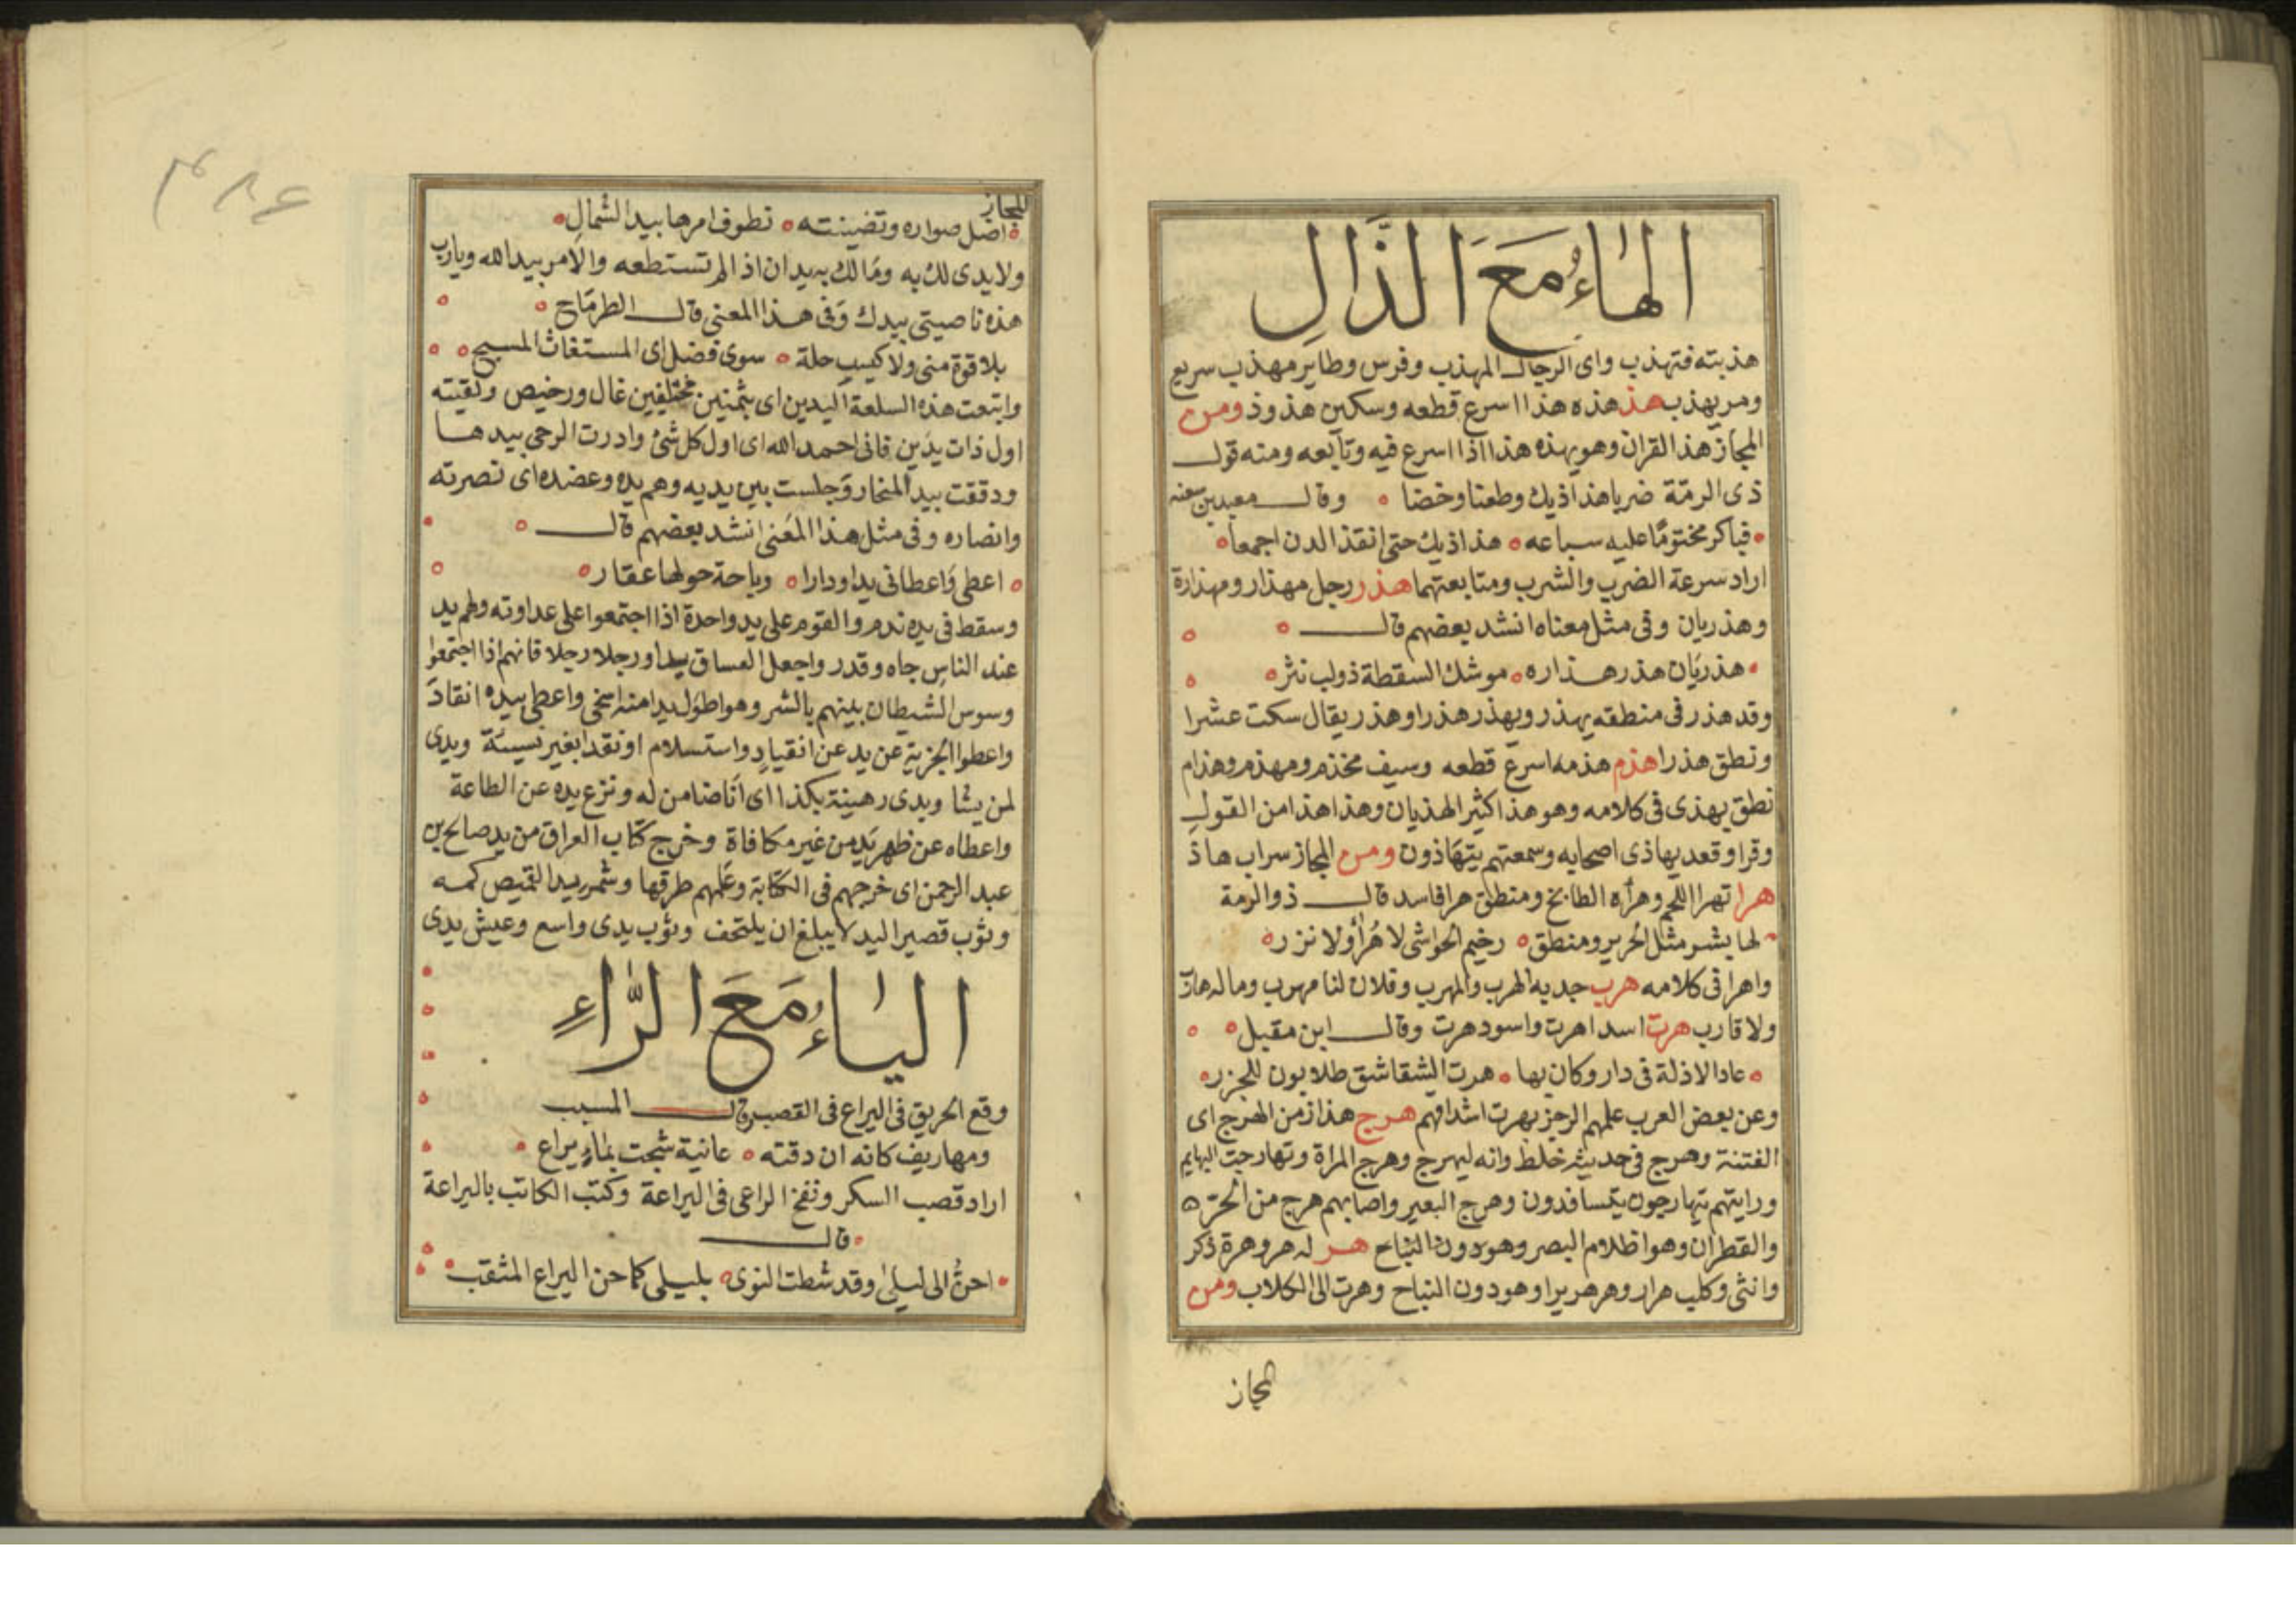 الهاء مع الذال
هذبته فتهذب واى الرجال المهذب وفرس وطاير مهذب سريع
ومر يهذب هذ هذه هذا اسرع قطعه وسكين هذوذ ومن
المجاز هذ القران وهو يهذه هذا اذا اسرع فيه وتابعه ومنه قول
ذى الرمة ضربا هذاذيك وطعنا وخضا وقال معبد بن سعنه
فباكر مختوما عليه سباعه هذاذيك حتى انقذ الدن اجمعا
اراد سرعة الضرب والشرب ومتابعتهما هذر رجل مهذار ومهذارة
وهذريان وفى مثل معناه انشد بعضهم قال
هذريان هذر هذاره موشك السقطة ذو لب نثر
وقد هذر فى منطقه يهذر ويهذر هذرا وهذر يقال سكت عشرا
ونطق هذرا هذم هذمه اسرع قطعه وسيف مخذم ومهذم وهذام
نطق يهذى فى كلامه وهو هذا كثير الهذيان وهذا هذا من القول
وقرا وقعد يهاذى اصحابه وسمعتهم يتهاذون ومن المجاز سراب هاذ
هرا تهرا اللحم وهرأه الطابخ ومنطق هرا فاسد قال ذو الرمة
لها بشر مثل الحرير ومنطق رخيم الحواشى لا هرأ ولا نزر
واهرا فى كلامه هرب جد به الهرب والمهرب وفلان لنا مهرب وما له هارب
ولا قارب هرت اسد اهرت واسود هرت وقال ابن مقبل
عاد الاذلة فى دار وكان بها هرت الشقاشق طلابون للجزر
وعن بعض العرب علمهم الرجز يهرت اشداقهم هرج هذا زمن الهرج اى
الفتنة وهرج فى حديثه خلط وانه ليهرج وهرج المراة وتهارجت البهايم
ورايتهم يتهارجون يتسافدون وهرج البعير واصابهم هرج من الحر
والقطران وهو اظلام البصر وهو دون النباح هر له هر وهرة ذكر
وانثى وكلب هرار وهر هريرا وهو دون النباح وهرت الى الكلاب ومن
المجاز
٤٨٣
المجاز
اضل صواره وتضينته نطوف امرها بيد الشمال
ولا يدى لك به وما لك به يدان اذا لم تستطعه والامر بيد الله ويارب
هذه ناصيتى بيدك وفى هذا المعنى قال الطرماح
بلا قوة منى ولا كيس حلة سوى فضل اى المستغاث المسبح
وابتعت هذه السلعة اليدين اى بثمنين مختلفين غال ورخيص ولقيته
اول ذات يدين فانى احمد الله اى اول كل شئ وادرت الرحى بيدها
ودققت بيد المنحاز وجلست بين يديه وهم يده وعضده اى نصرته
وانصاره وفى مثل هذا المعنى انشد بعضهم قال
اعطى واعطانى يدا ودارا وباحة حولها عقار
وسقط فى يده ندم والقوم على يد واحدة اذا اجتمعوا على عداوته ولهم يد
عند الناس جاه وقدر واجعل الفساق يدا يدا ورجلا رجلا فانهم اذا اجتمعوا
وسوس الشيطان بينهم بالشر وهو اطول يدا منه اسخى واعطى بيده انقاد
واعطوا الجزية عن يد عن انقياد واستسلام او نقدا بغير نسيئة ويدى
لمن يشا ويدى رهينة بكذا اى انا ضامن له ونزع يده عن الطاعة
واعطاه عن ظهر يد من غير مكافاة وخرج كتاب العراق من يد صالح بن
عبد الرحمن اى خرجهم فى الكتابة وعلمهم طرقها وشمر يد القميص كمه
وثوب قصير اليد لا يبلغ ان يلتحف وثوب يدى واسع وعيش يدى
الياء مع الراء
وقع الحريق فى اليراع فى القصب قال المسيب
ومها ريف كانه ان دقته عانية شجت بماء يراع
اراد قصب السكر ونفخ الراعى فى اليراعة وكتب الكاتب باليراعة
قال
احن الى ليلى وقد شطت النوى بليلى كما حن اليراع المثقب